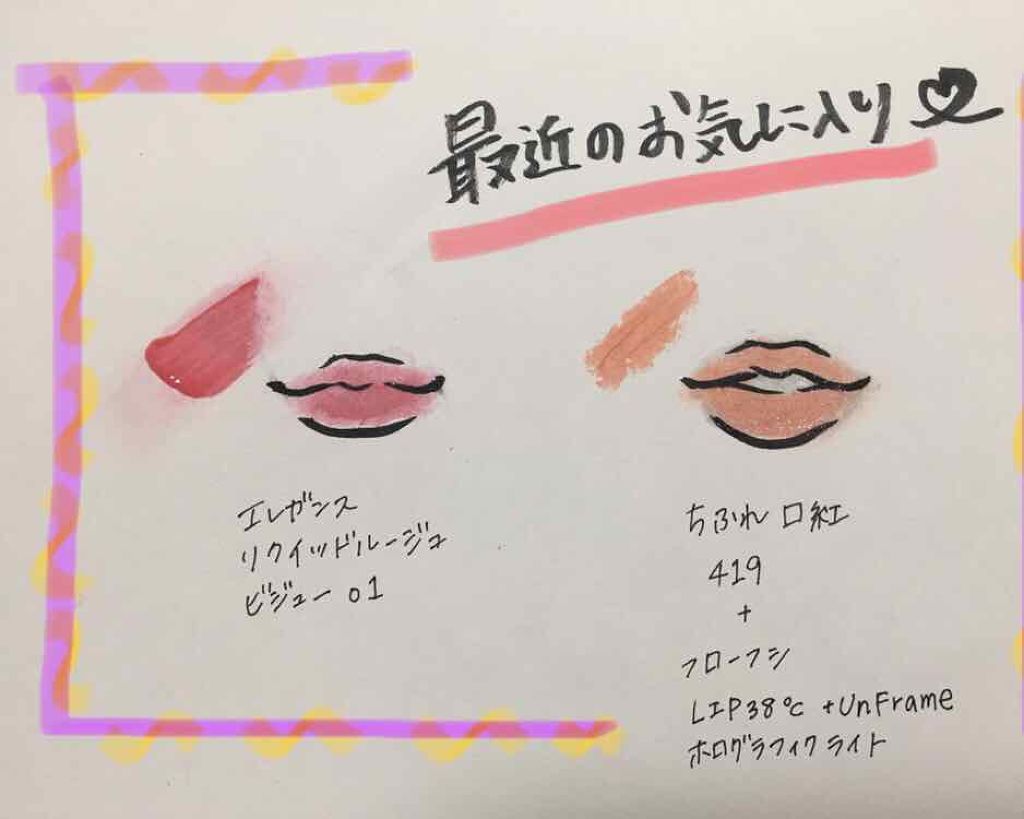 最近のお気に入り
エレガンス
リクイッドルージュ
ビジュー 01
ちふれ 口紅
419
+
フローフシ
LIP38℃ +UnFrame
ホログラフィクライト